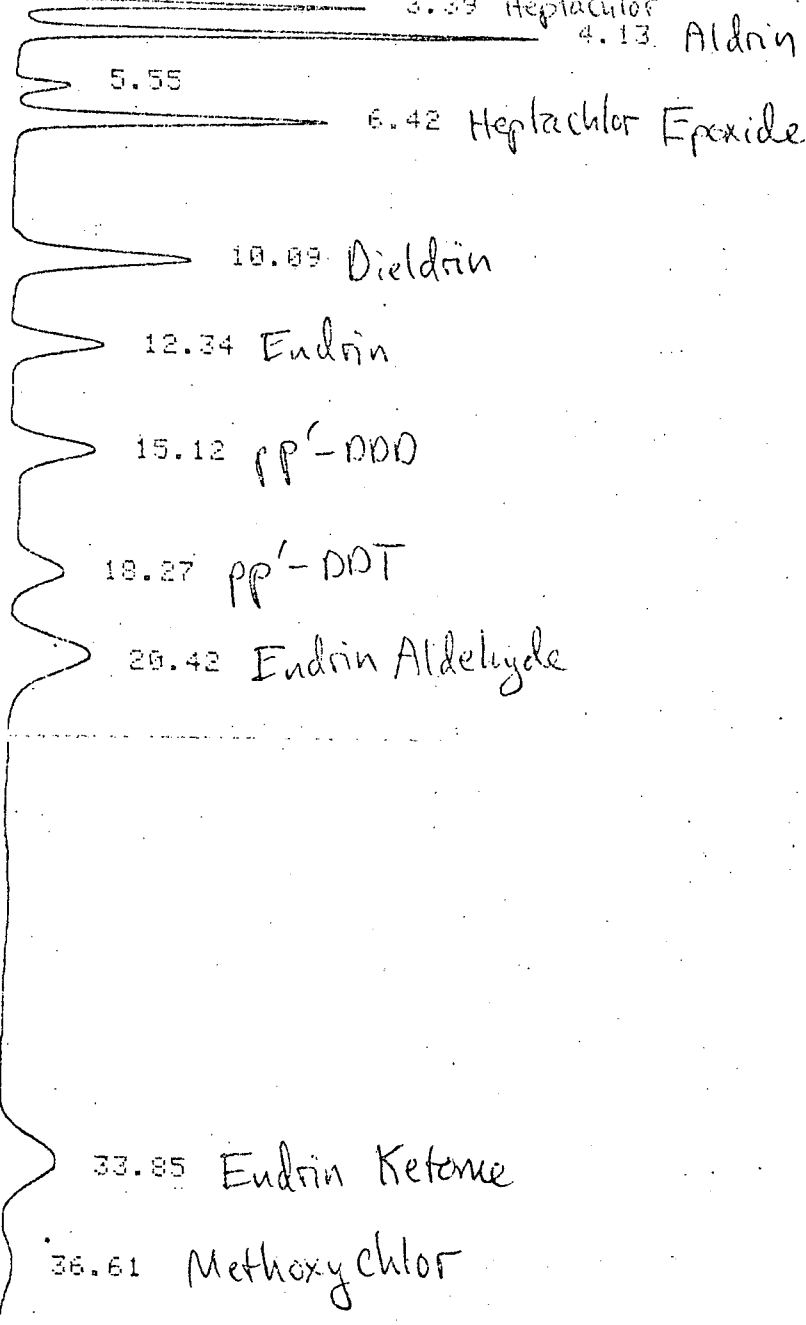 3.39 Heptachlor
4.13 Aldrin
5.55
6.42 Heptachlor Epoxide
10.09 Dieldrin
12.34 Endrin
15.12 pp'-DDD
18.27 pp'-DDT
20.42 Endrin Aldehyde
33.85 Endrin Ketone
36.61 Methoxychlor